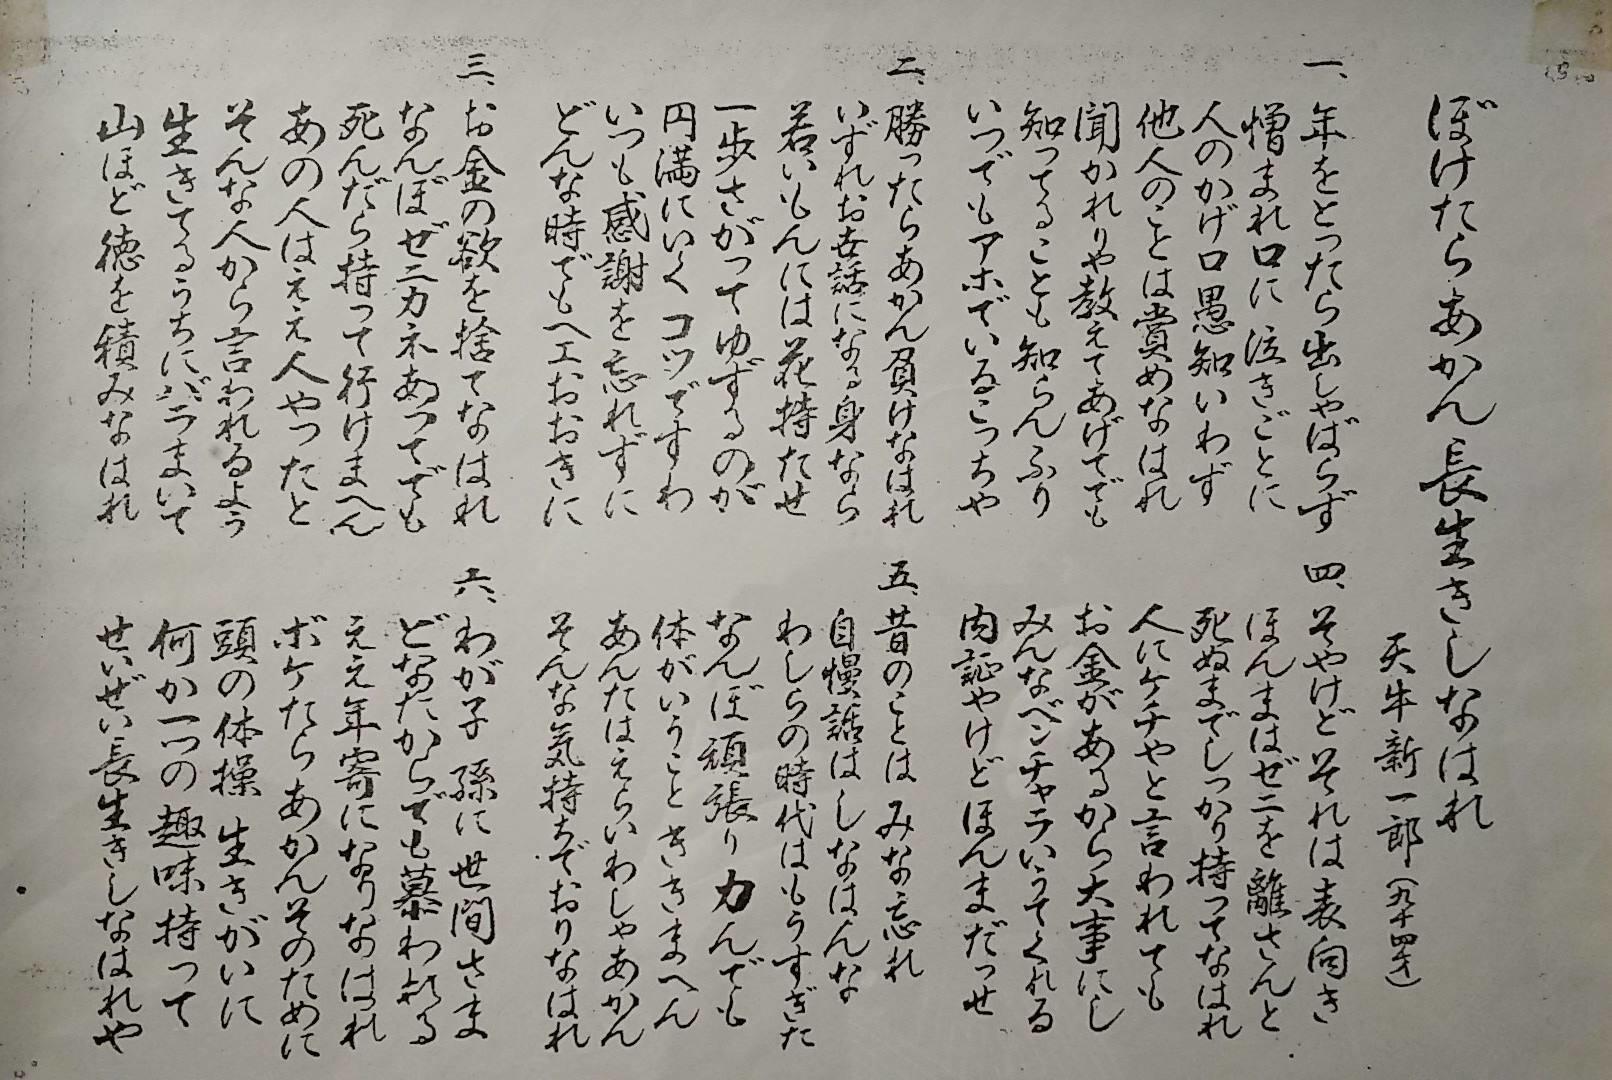 ぼけたらあかん 長生きしなはれ
天牛新一郎(九十四才)
一、年をとったら出しゃばらず
憎まれ口に泣きごとに
人のかげ口愚知いわず
他人のことは賞めなはれ
聞かれりゃ教えてあげてでも
知ってることも知らんふり
いつでもアホでいるこっちゃ
二、勝ったらあかん負けなはれ
いずれお世話になる身なら
若いもんには花持たせ
一歩さがってゆずるのが
円満にいくコツですわ
いつも感謝を忘れずに
どんな時でもヘエおおきに
三、お金の欲を捨てなはれ
なんぼゼニカネあってでも
死んだら持って行けまへん
あの人はええ人やったと
そんな人から言われるよう
生きてるうちにバラまいて
山ほど徳を積みなはれ
四、そやけどそれは表向き
ほんまはゼニを離さんと
死ぬまでしっかり持ってなはれ
人にケチやと言われても
お金があるから大事にし
みんなベンチャラいうてくれる
内証やけどほんまだっせ
五、昔のことはみな忘れ
自慢話はしなはんな
わしらの時代はもうすぎた
なんぼ頑張り力んでも
体がいうこときまへん
あんたはえらいわしゃあかん
そんな気持ちでおりなはれ
六、わが子孫に世間さま
どなたからでも慕われる
ええ年寄になりなはれ
ボケたらあかんそのために
頭の体操生きがいに
何か一つの趣味持って
せいぜい長生きしなはれや